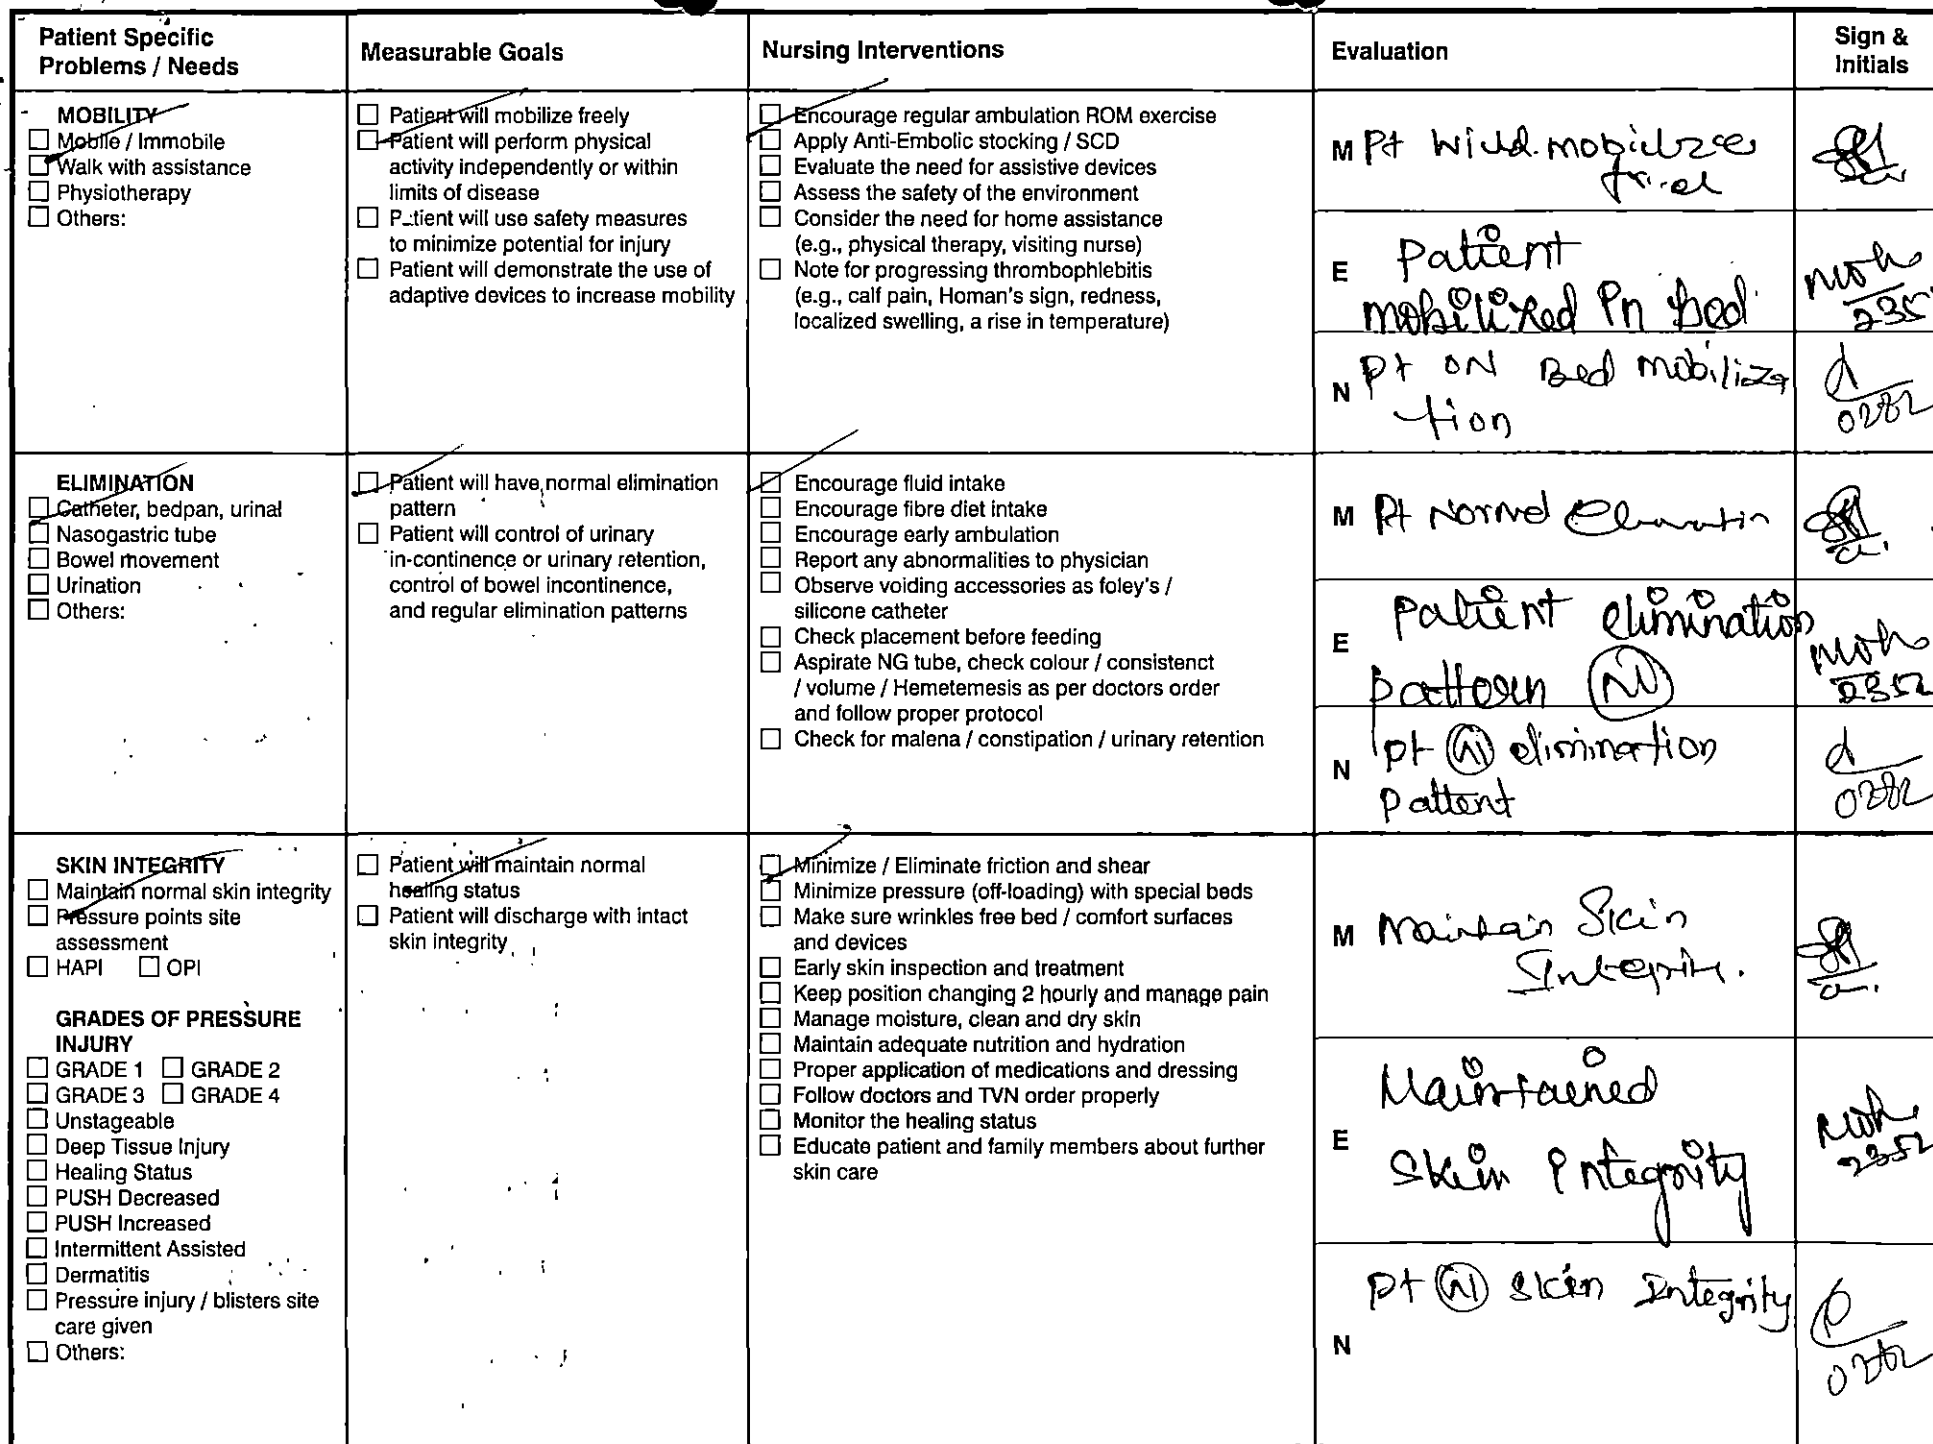 Patient Specific
Problems / Needs
Measurable Goals
Nursing Interventions
Evaluation
Sign &
Initials
MOBILITY
Mobile / Immobile
Walk with assistance
Physiotherapy
Others:
Patient will mobilize freely
Patient will perform physical
activity independently or within
limits of disease
Patient will use safety measures
to minimize potential for injury
Patient will demonstrate the use of
adaptive devices to increase mobility
Encourage regular ambulation ROM exercise
Apply Anti-Embolic stocking / SCD
Evaluate the need for assistive devices
Assess the safety of the environment
Consider the need for home assistance
(e.g., physical therapy, visiting nurse)
Note for progressing thrombophlebitis
(e.g., calf pain, Homan's sign, redness,
localized swelling, a rise in temperature)
M Pt
E Patient
mobilized in bed
2352
N Pt ON Bed mobiliza
tion
0282
ELIMINATION
Catheter, bedpan, urinal
Nasogastric tube
Bowel movement
Urination
Others:
Patient will have normal elimination
pattern
Patient will control of urinary
in-continence or urinary retention,
control of bowel incontinence,
and regular elimination patterns
Encourage fluid intake
Encourage fibre diet intake
Encourage early ambulation
Report any abnormalities to physician
Observe voiding accessories as foley's /
silicone catheter
Check placement before feeding
Aspirate NG tube, check colour / consistenct
/ volume / Hemetemesis as per doctors order
and follow proper protocol
Check for malena / constipation / urinary retention
M Pt Normal
E Patient elimination
pattern
2352
N pt elimination
pattent
0282
SKIN INTEGRITY
Maintain normal skin integrity
Pressure points site
assessment
HAPI OPI
GRADES OF PRESSURE
INJURY
GRADE 1 GRADE 2
GRADE 3 GRADE 4
Unstageable
Deep Tissue Injury
Healing Status
PUSH Decreased
PUSH Increased
Intermittent Assisted
Dermatitis
Pressure injury / blisters site
care given
Others:
Patient will maintain normal
healing status
Patient will discharge with intact
skin integrity
Minimize / Eliminate friction and shear
Minimize pressure (off-loading) with special beds
Make sure wrinkles free bed / comfort surfaces
and devices
Early skin inspection and treatment
Keep position changing 2 hourly and manage pain
Manage moisture, clean and dry skin
Maintain adequate nutrition and hydration
Proper application of medications and dressing
Follow doctors and TVN order properly
Monitor the healing status
Educate patient and family members about further
skin care
M Maintain Skin
Integrity.
E Maintained
Skin integrity
2352
N pt skin Integrity
0282